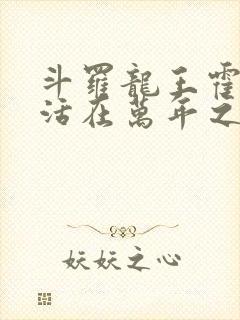 斗羅龍王霍
活在萬年之
妖妖之心